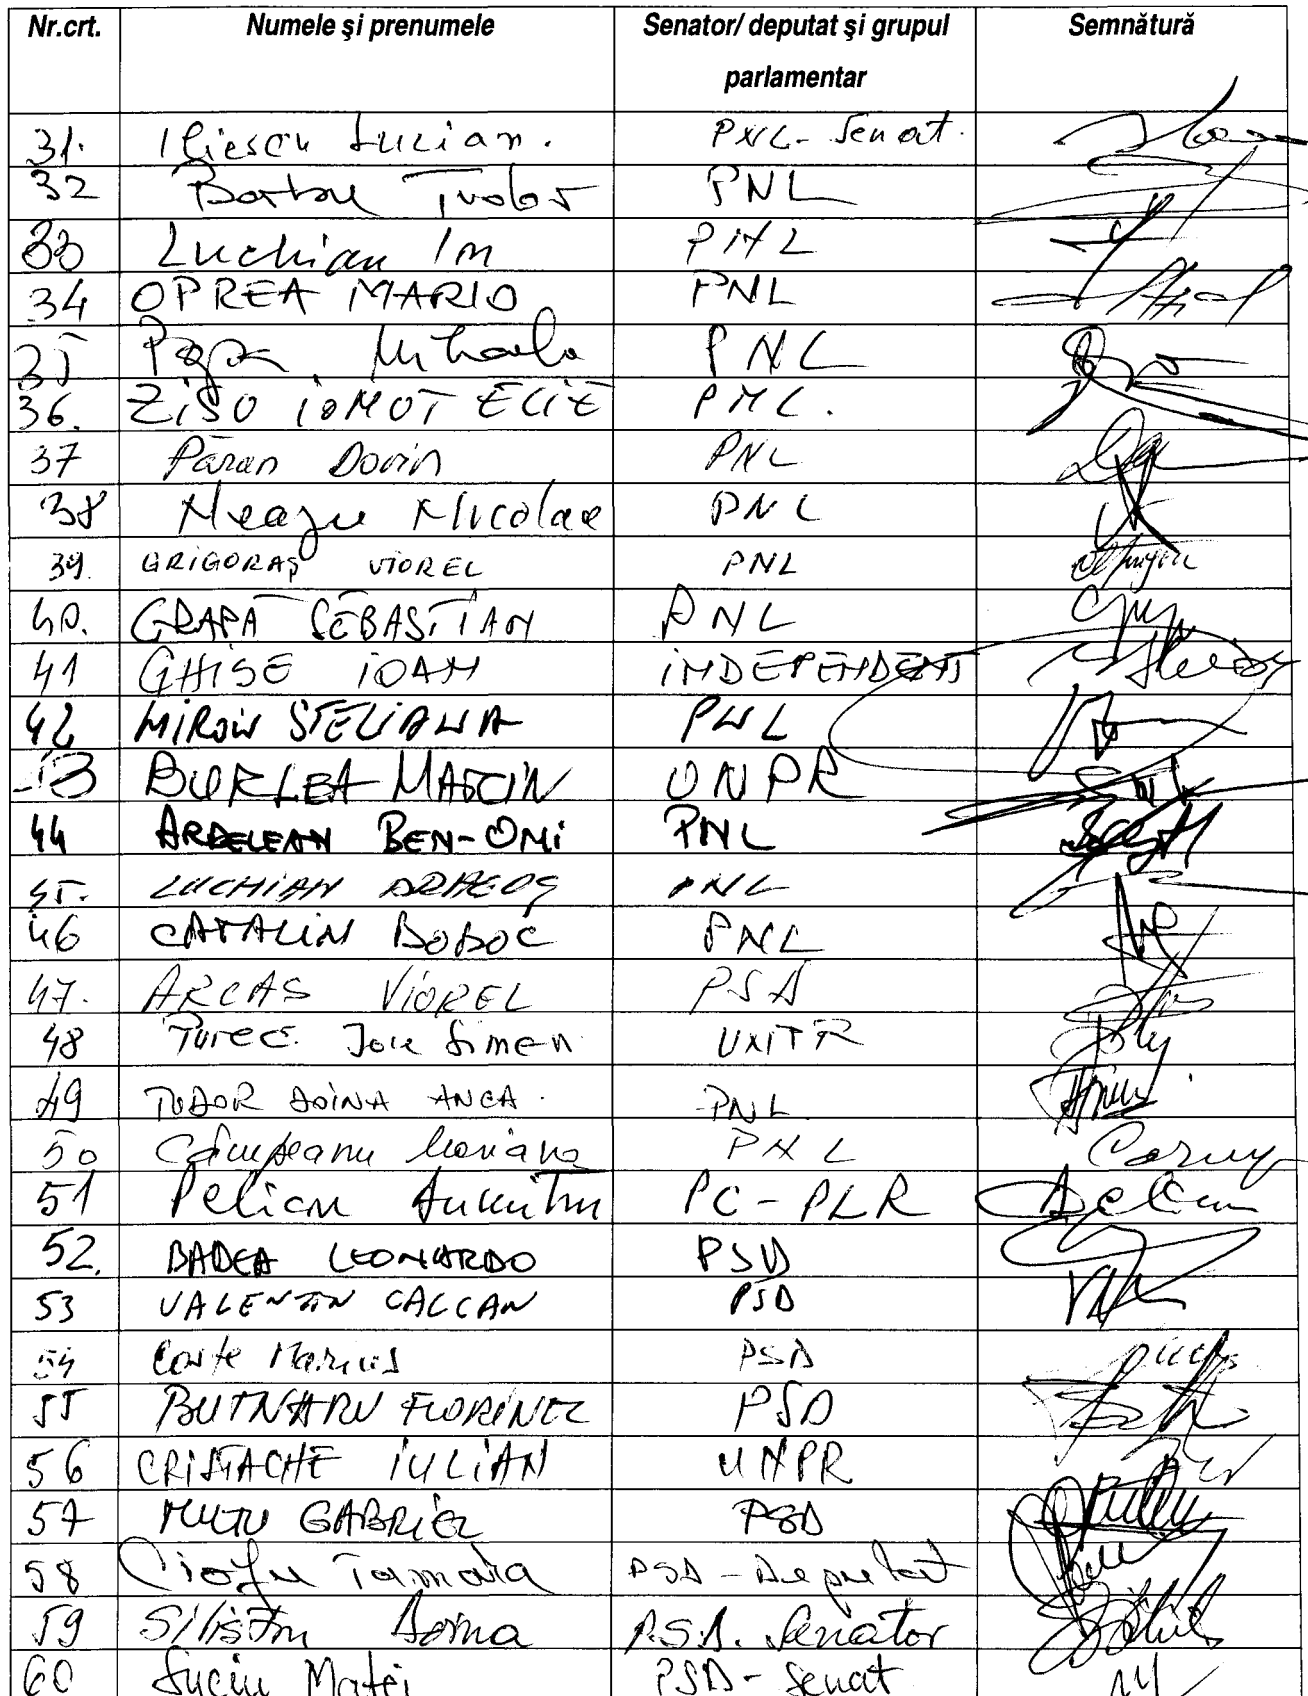 Nr.crt. Numele și prenumele Senator/ deputat și grupul parlamentar Semnătură
31. Iliescu Lucian. PNL- Senat.
32 Barbu Tudor PNL
33 Luchian Ion PNL
34 OPREA MARIO PNL
35 Popa Mihaela PNL
36. ZISU IONUT ELIE PNL.
37 Păran Dorin PNL
38 Neagu Nicolae PNL
39. GRIGORAȘ VIOREL PNL
40. GRAPĂ SEBASTIAN PNL
41 GHISE IOAN INDEPENDENT
42 MIRON STELIANA PNL
43 BURLEA MARIN UNPR
44 ARDELEAN BEN-ONI PNL
45. LUCHIAN DRAGOȘ PNL
46 CATALIN BOBOC PNL
47. ARCAS VIOREL PSD
48 Simon
49 TUDOR DOINA ANCA. PNL
50 Câmpeanu Mariana PNL
51 Pelican Dumitru PC-PLR
52. BADEA LEONARDO PSD
53 VALENTIN CALCAN PSD
54 Marius PSD
55 BUTNARU FLORINEL PSD
56 CRISTACHE IULIAN UNPR
57 MUTU GABRIEL PSD
58 Ciofu Tamara PSD - Deputat
59 Silistru Doina P.S.D. Senator
60 Suciu Matei PSD- Senat